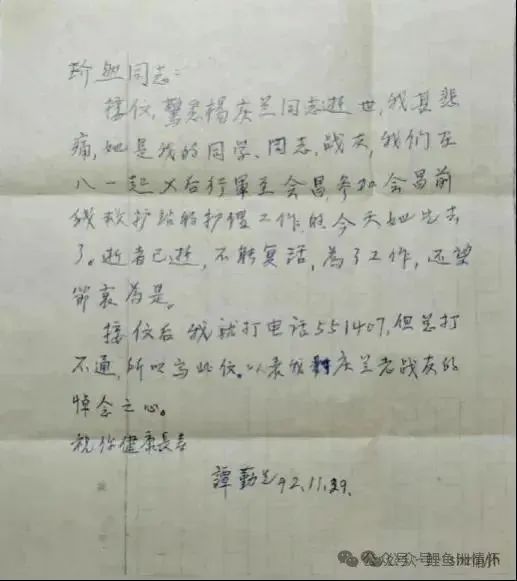 珍如同志：
接信，驚悉楊庆兰同志逝世，我甚悲
痛，她是我的同学、同志、战友，我们在
八一起义后行軍至会昌，参加会昌前
线救护站的护理工作，的今天她先去
了。逝者已逝，不能复活，為了工作，还望
節哀為是。
接信后我就打电话551407，但总打
不通，所以写此信。以表我对庆兰老战友的
悼念之心。
祝你健康長寿
譚勤先92.11.29.
公众号·鲤鱼洲情怀